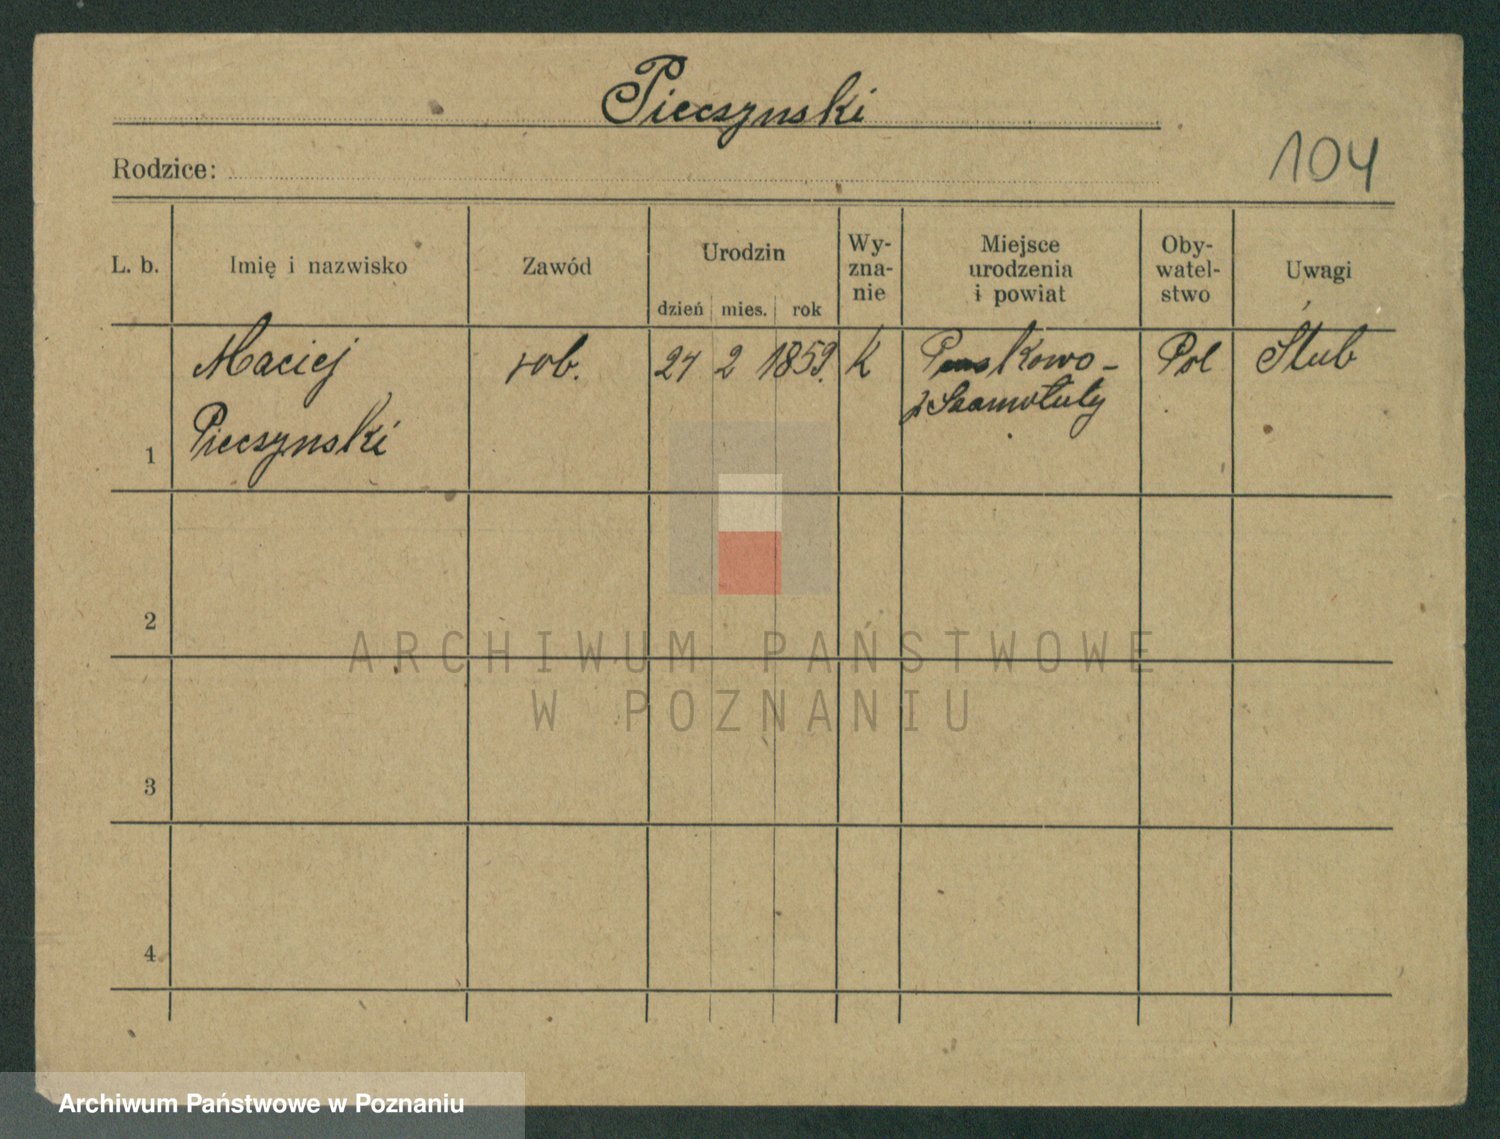 Piecszynski
104
Rodzice:
L. b.
Imię i nazwisko
Zawód
Urodzin
dzień mies. rok
Wy-
zna-
nie
Miejsce
urodzenia
i powiat
Oby-
watel-
stwo
Uwagi
Maciej
Piecszynski
rob.
2
K
Szamotuły
Pol
1
2
3
4
ARCHIWUM PAŃSTWOWE
W POZNANIU
Archiwum Państwowe w Poznaniu